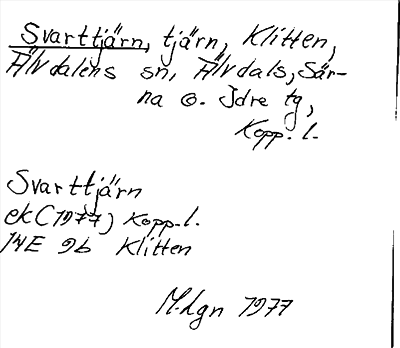 Svarttjärn, tjärn, Klitten,
Älvdalens sn, Älvdals, Sär-
na o. Idre tg,
Kopp. l.
Svarttjärn
ek (1977) Kopp. l.
14E 9b Klitten
M. Lgn 1977